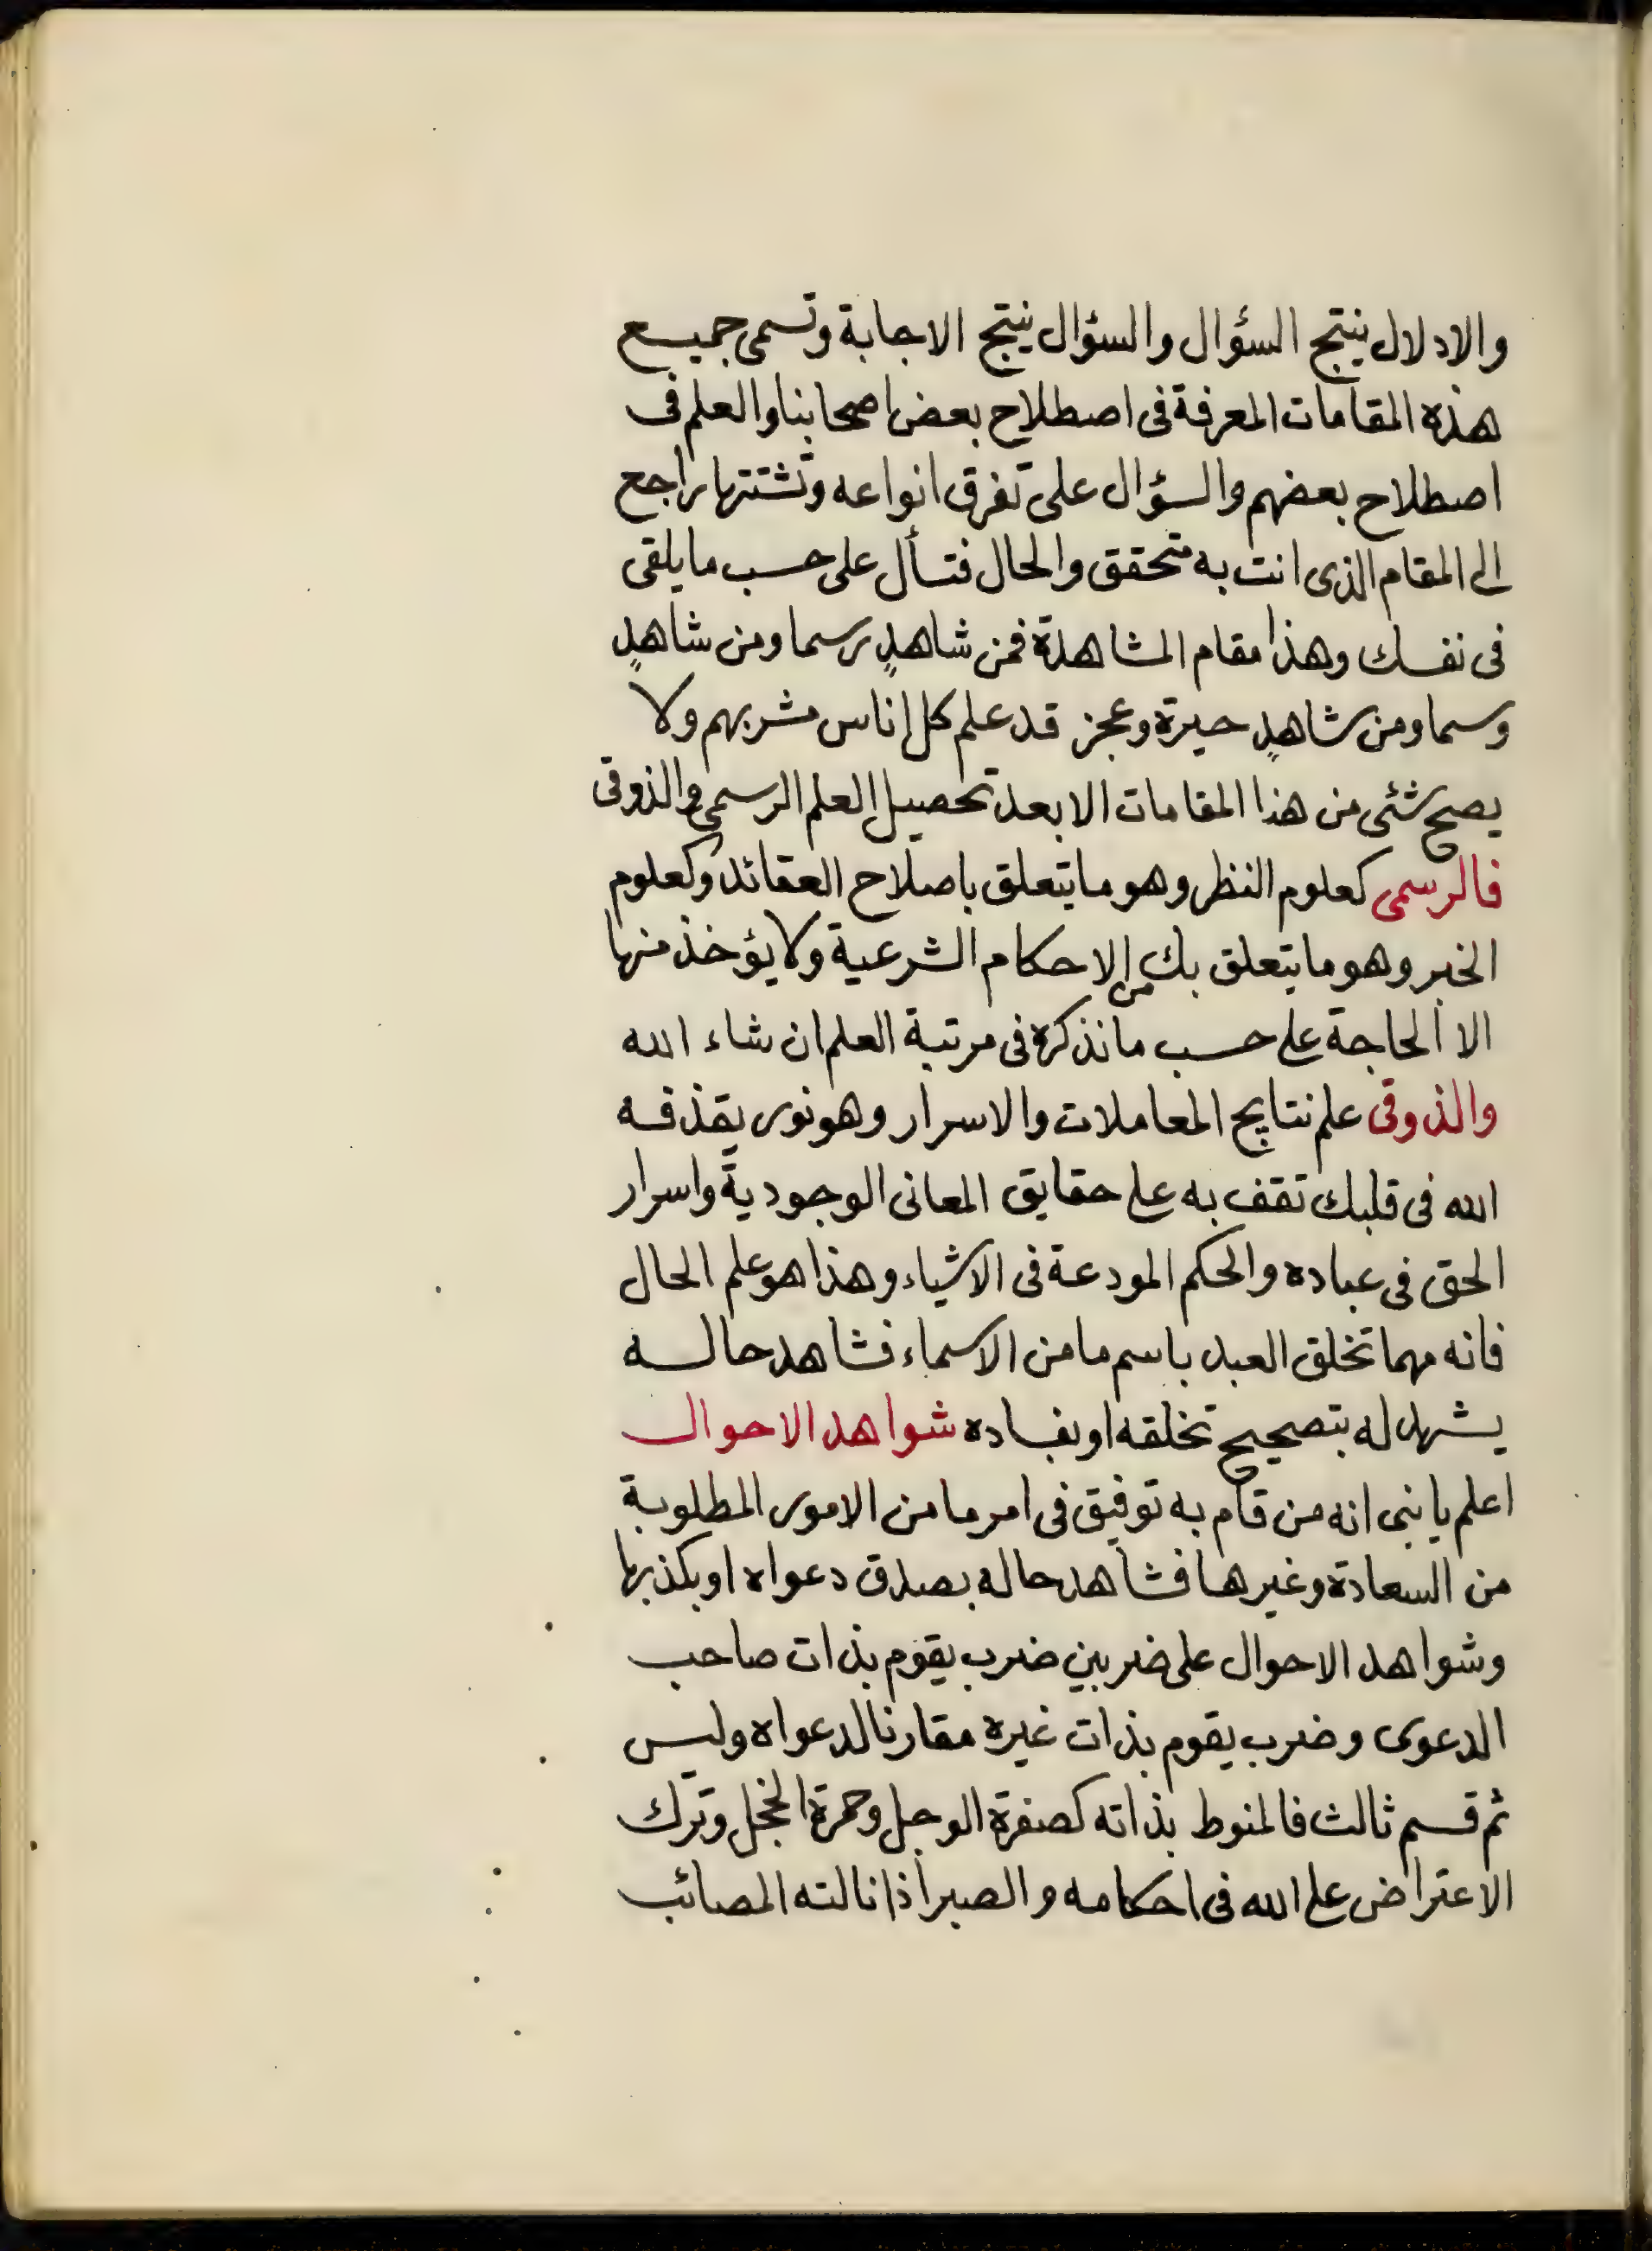 والادلال ينتج السؤال والسؤال ينتج الاجابة وتسمى جميع
هذه المقامات المعرفة فى اصطلاح بعض اصحابنا والعلم فى
اصطلاح بعضهم والسؤال على تفرق انواعه وتشتتها راجع
الى المقام الذى انت به متحقق والحال فتسأل على حسب ما يلقى
فى نفسك وهذا مقام المشاهدة فمن شاهدٍ رسما ومن شاهدٍ
وسما ومن شاهدٍ حيرة وعجز قد علم كل اناس مشربهم ولا
يصح شئى من هذا المقامات الا بعد تحصيل العلم الرسمى والذوقى
فالرسمى كعلوم النظر وهو ما يتعلق باصلاح العقائد وكعلوم
الخبر وهو ما يتعلق بك من الاحكام الشرعية ولا يؤخذ منها
الا الحاجة على حسب ما نذكره فى مرتبة العلم ان شاء الله
والذوقى علم نتايج المعاملات والاسرار وهو نور يقذفه
الله فى قلبك تقف به على حقايق المعانى الوجودية واسرار
الحق فى عباده والحكم المودعة فى الاشياء وهذا هو علم الحال
فانه مهما تخلق العبد باسم ما من الاسماء فشاهد حاله
يشهد له بتصحيح تخلقه او بفساده شواهد الاحوال
اعلم يا بنى انه من قام به توفيق فى امر ما من الامور المطلوبة
من السعادة وغيرها فشاهد حاله بصدق دعواه او بكذبها
وشواهد الاحوال على ضربين ضرب يقوم بذات صاحب
الدعوى وضرب يقوم بذات غيره مقارنا لدعواه وليس
ثم قسم ثالث فالمنوط بذاته كصفرة الوجل وحمرة الخجل وترك
الاعتراض على الله فى احكامه والصبر اذا نالته المصائب